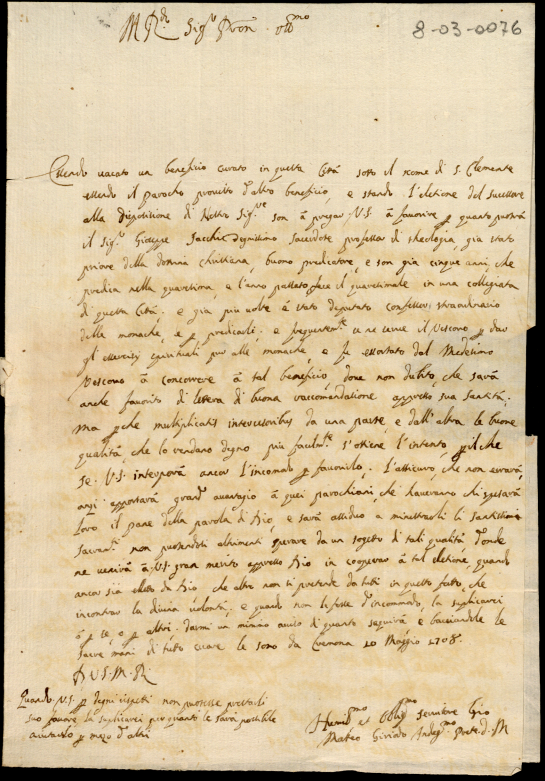 M R.do Sig.r Pron. oss.mo
8-03-0076
Essendo vacato un beneficio curato in questa Città sotto il nome di S. Clemente
essendo il parocho provisto d'altro beneficio, e stando l'eletione del sucessore
alla dispositione di Nostro Sig.re son à pregar V.S. à favorire p quanto potrà
il Sig.r Giuseppe Sacchi dignissimo sacerdote, professor di theologia, già stato
priore della dottrina christiana, buono predicatore, e son già cinque anni, che
predica nella quaresima, e l'anno passato fece il quaresimale in una collegiata
di questa Città, e già più volte è stato deputato confessore straordinario
delle monache, e p predicali, e frequentem.te se ne serve il Vescovo p dar
gl'essercizij spirituali pur alle monache, e fu essortato dal Medesimo
Vescovo à concorrere à tal beneficio, dove non dubito, che sarà
anche favorito di lettera di buona raccomandatione appresso sua Santità;
ma perche multiplicatis intercessoribus da una parte, e dall'altra le buone
qualità, che lo rendano degno più facilm.te s'ottiene l'intento, p il che
se V.S. interporrà ancor l'incomodo p favorirlo. l'assicuro, che non errarà,
anzi apportarà grand'avantagio à quei parochiani, che haveranno chi spezarà
loro il pane della parola di Dio, e sarà assiduo à ministrarli li santissimi
sacram.ti non potendosi altrimenti sperare da un sogetto di tali qualità d'onde
ne venirà à V.S. gran merito appresso Dio in cooperar à tal eletione, quando
ancor sia eletto da Dio, che altro non si pretende da tutti in questo fatto, che
incontrar la divina volontà; e quando non le fosse d'incommodo, la suplicarei
ò p se, o p altri, darmi un minimo aviso di quanto seguirà e bacciandole le
sacre mani di tutto cuore le sono da Cremona 10 Maggio 1708.
D V.S.M.R.
Quando V.S. p degni rispetti non potesse prestarli
suo favore, la suplicarei per quanto le sarà possibile
aiutarlo p mezo d'altri
Humil.mo et Oblig.mo Servitore Gio
Matteo Indeg.mo Prete d. M